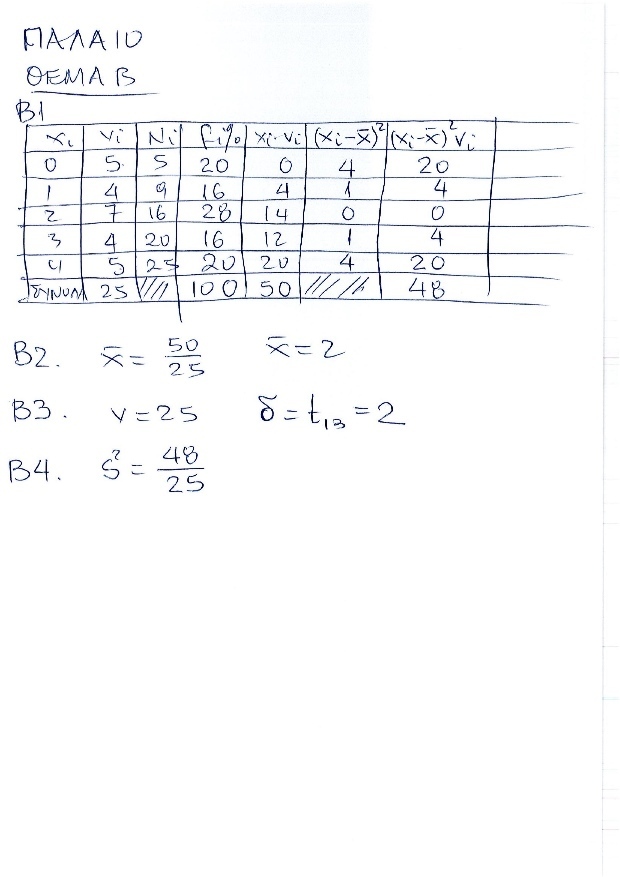 ΠΑΛΑΙΟ
ΘΕΜΑ Β
Β1
xᵢ νᵢ Nᵢ fᵢ% xᵢ·νᵢ (xᵢ-x̄)² (xᵢ-x̄)²νᵢ
0 5 5 20 0 4 20
1 4 9 16 4 1 4
2 7 16 28 14 0 0
3 4 20 16 12 1 4
4 5 25 20 20 4 20
ΣΥΝΟΛ 25 100 50 48
Β2. x̄ = 50/25 x̄ = 2
Β3. ν = 25 δ = t₁₃ = 2
Β4. s² = 48/25